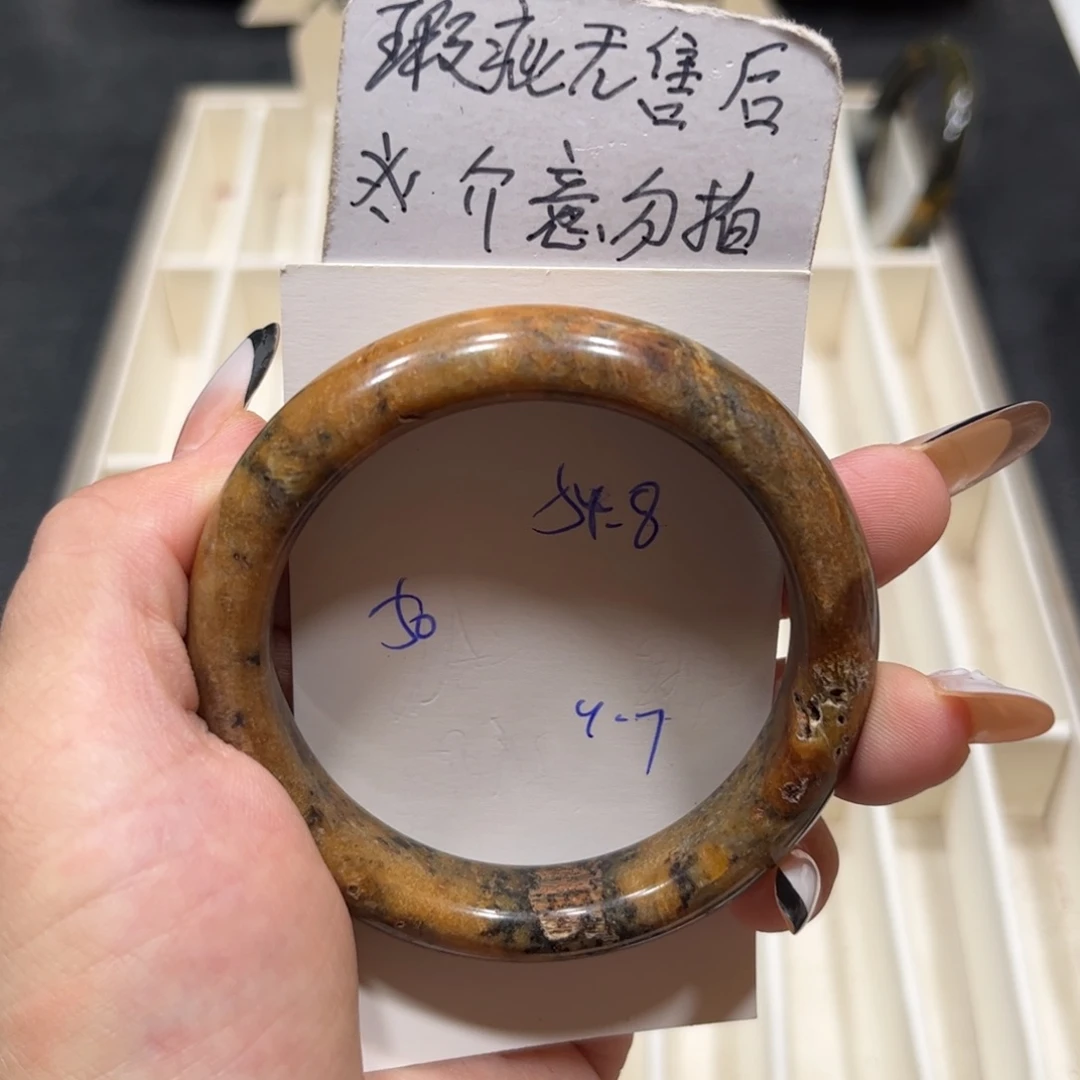 瑕疵无售后
※ 介意勿拍
54-8
50
4-7